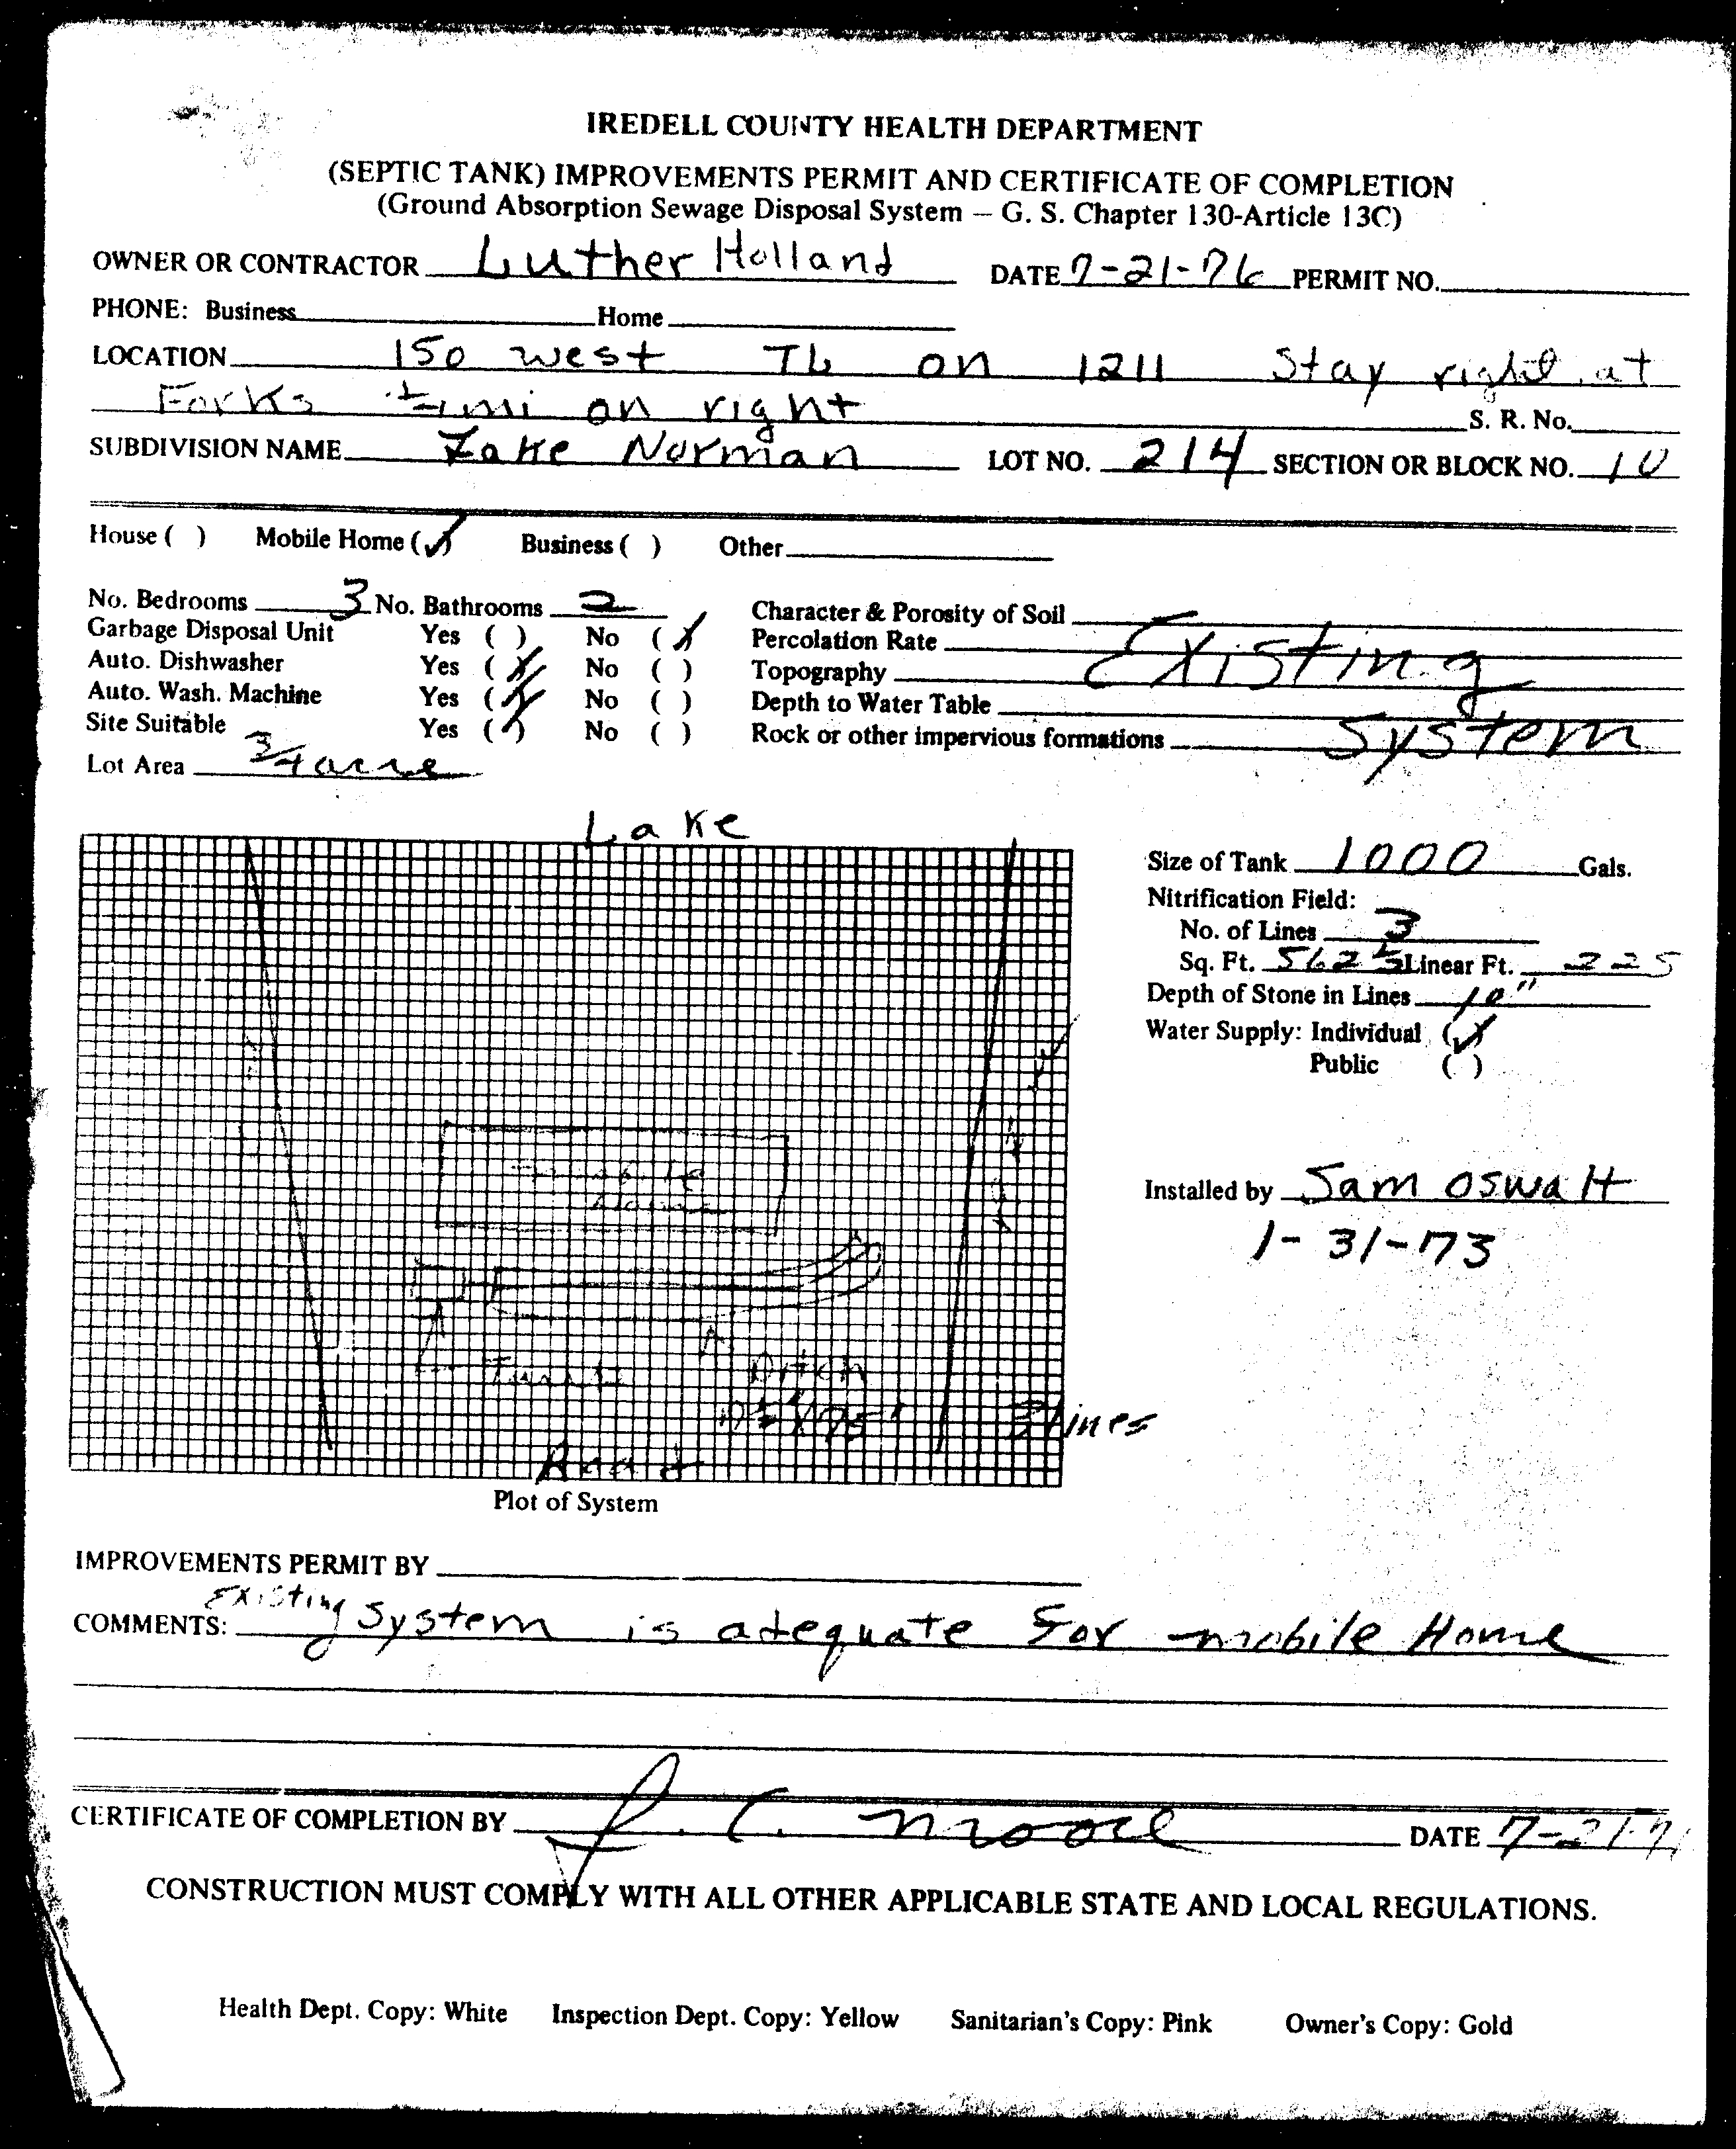 IREDELL COUNTY HEALTH DEPARTMENT
(SEPTIC TANK) IMPROVEMENTS PERMIT AND CERTIFICATE OF COMPLETION
(Ground Absorption Sewage Disposal System – G. S. Chapter 130-Article 13C)
OWNER OR CONTRACTOR Luther Holland DATE 7-21-76 PERMIT NO.
PHONE: Business Home
LOCATION 150 west TL on 1211 Stay right at
Forks mi on right S. R. No.
SUBDIVISION NAME Lake Norman LOT NO. 214 SECTION OR BLOCK NO. 10
House ( ) Mobile Home (✓) Business ( ) Other
No. Bedrooms 3 No. Bathrooms 2 Character & Porosity of Soil
Garbage Disposal Unit Yes ( ) No (✓) Percolation Rate Existing
Auto. Dishwasher Yes (✓) No ( ) Topography
Auto. Wash. Machine Yes (✓) No ( ) Depth to Water Table
Site Suitable Yes (✓) No ( ) Rock or other impervious formations System
Lot Area 3/4 acre
Lake
Size of Tank 1000 Gals.
Nitrification Field:
No. of Lines 3
Sq. Ft. 562 1/2 Linear Ft. 225
Depth of Stone in Lines 10"
Water Supply: Individual (✓)
Public ( )
Mobile
Home
Installed by Sam Oswalt
1-31-73
Tank Ditch
X 75' 3 lines
Road
Plot of System
IMPROVEMENTS PERMIT BY
COMMENTS: Existing System is adequate for mobile Home
CERTIFICATE OF COMPLETION BY J. C. Moore DATE 7-21-7
CONSTRUCTION MUST COMPLY WITH ALL OTHER APPLICABLE STATE AND LOCAL REGULATIONS.
Health Dept. Copy: White Inspection Dept. Copy: Yellow Sanitarian's Copy: Pink Owner's Copy: Gold